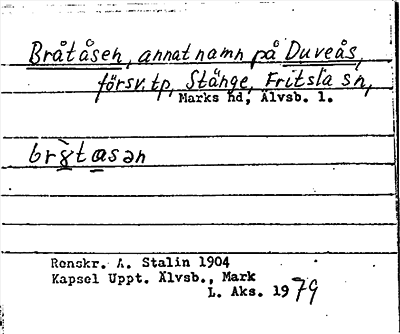 Bråtåsen, annat namn på Duveås,
försv. tp, Stänge, Fritsla sn,
Marks hd, Älvsb. l.
Renskr. A. Stalin 1904
Kapsel Uppt. Älvsb., Mark
L. Aks. 1979